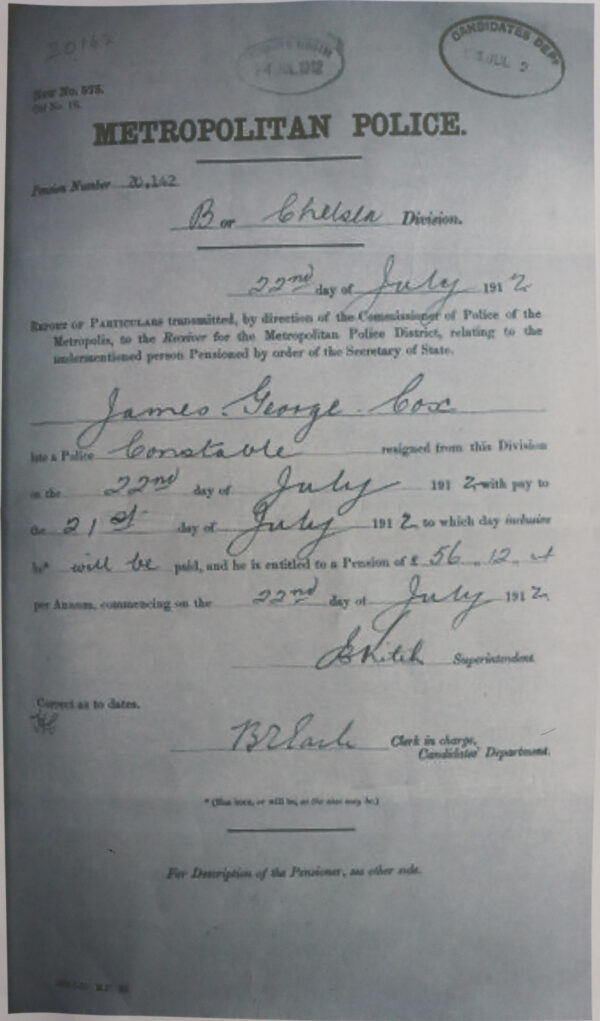 20142
24 JUL 1912
CANDIDATES DEPT
JUL 2
New No. 575.
Old No. 16.
METROPOLITAN POLICE.
Pension Number 20,142
B or Chelsea Division.
22nd day of July 1912
REPORT OF PARTICULARS transmitted, by direction of the Commissioner of Police of the
Metropolis, to the Receiver for the Metropolitan Police District, relating to the
undermentioned person Pensioned by order of the Secretary of State.
James George Cox
late a Police Constable resigned from this Division
on the 22nd day of July 1912 with pay to
the 21st day of July 1912 to which day inclusive
he* will be paid, and he is entitled to a Pension of £ 56. 12.
per Annum, commencing on the 22nd day of July 1912
Superintendent
Correct as to dates.
Clerk in charge,
Candidates' Department.
* (Has been, or will be, as the case may be.)
For Description of the Pensioner, see other side.